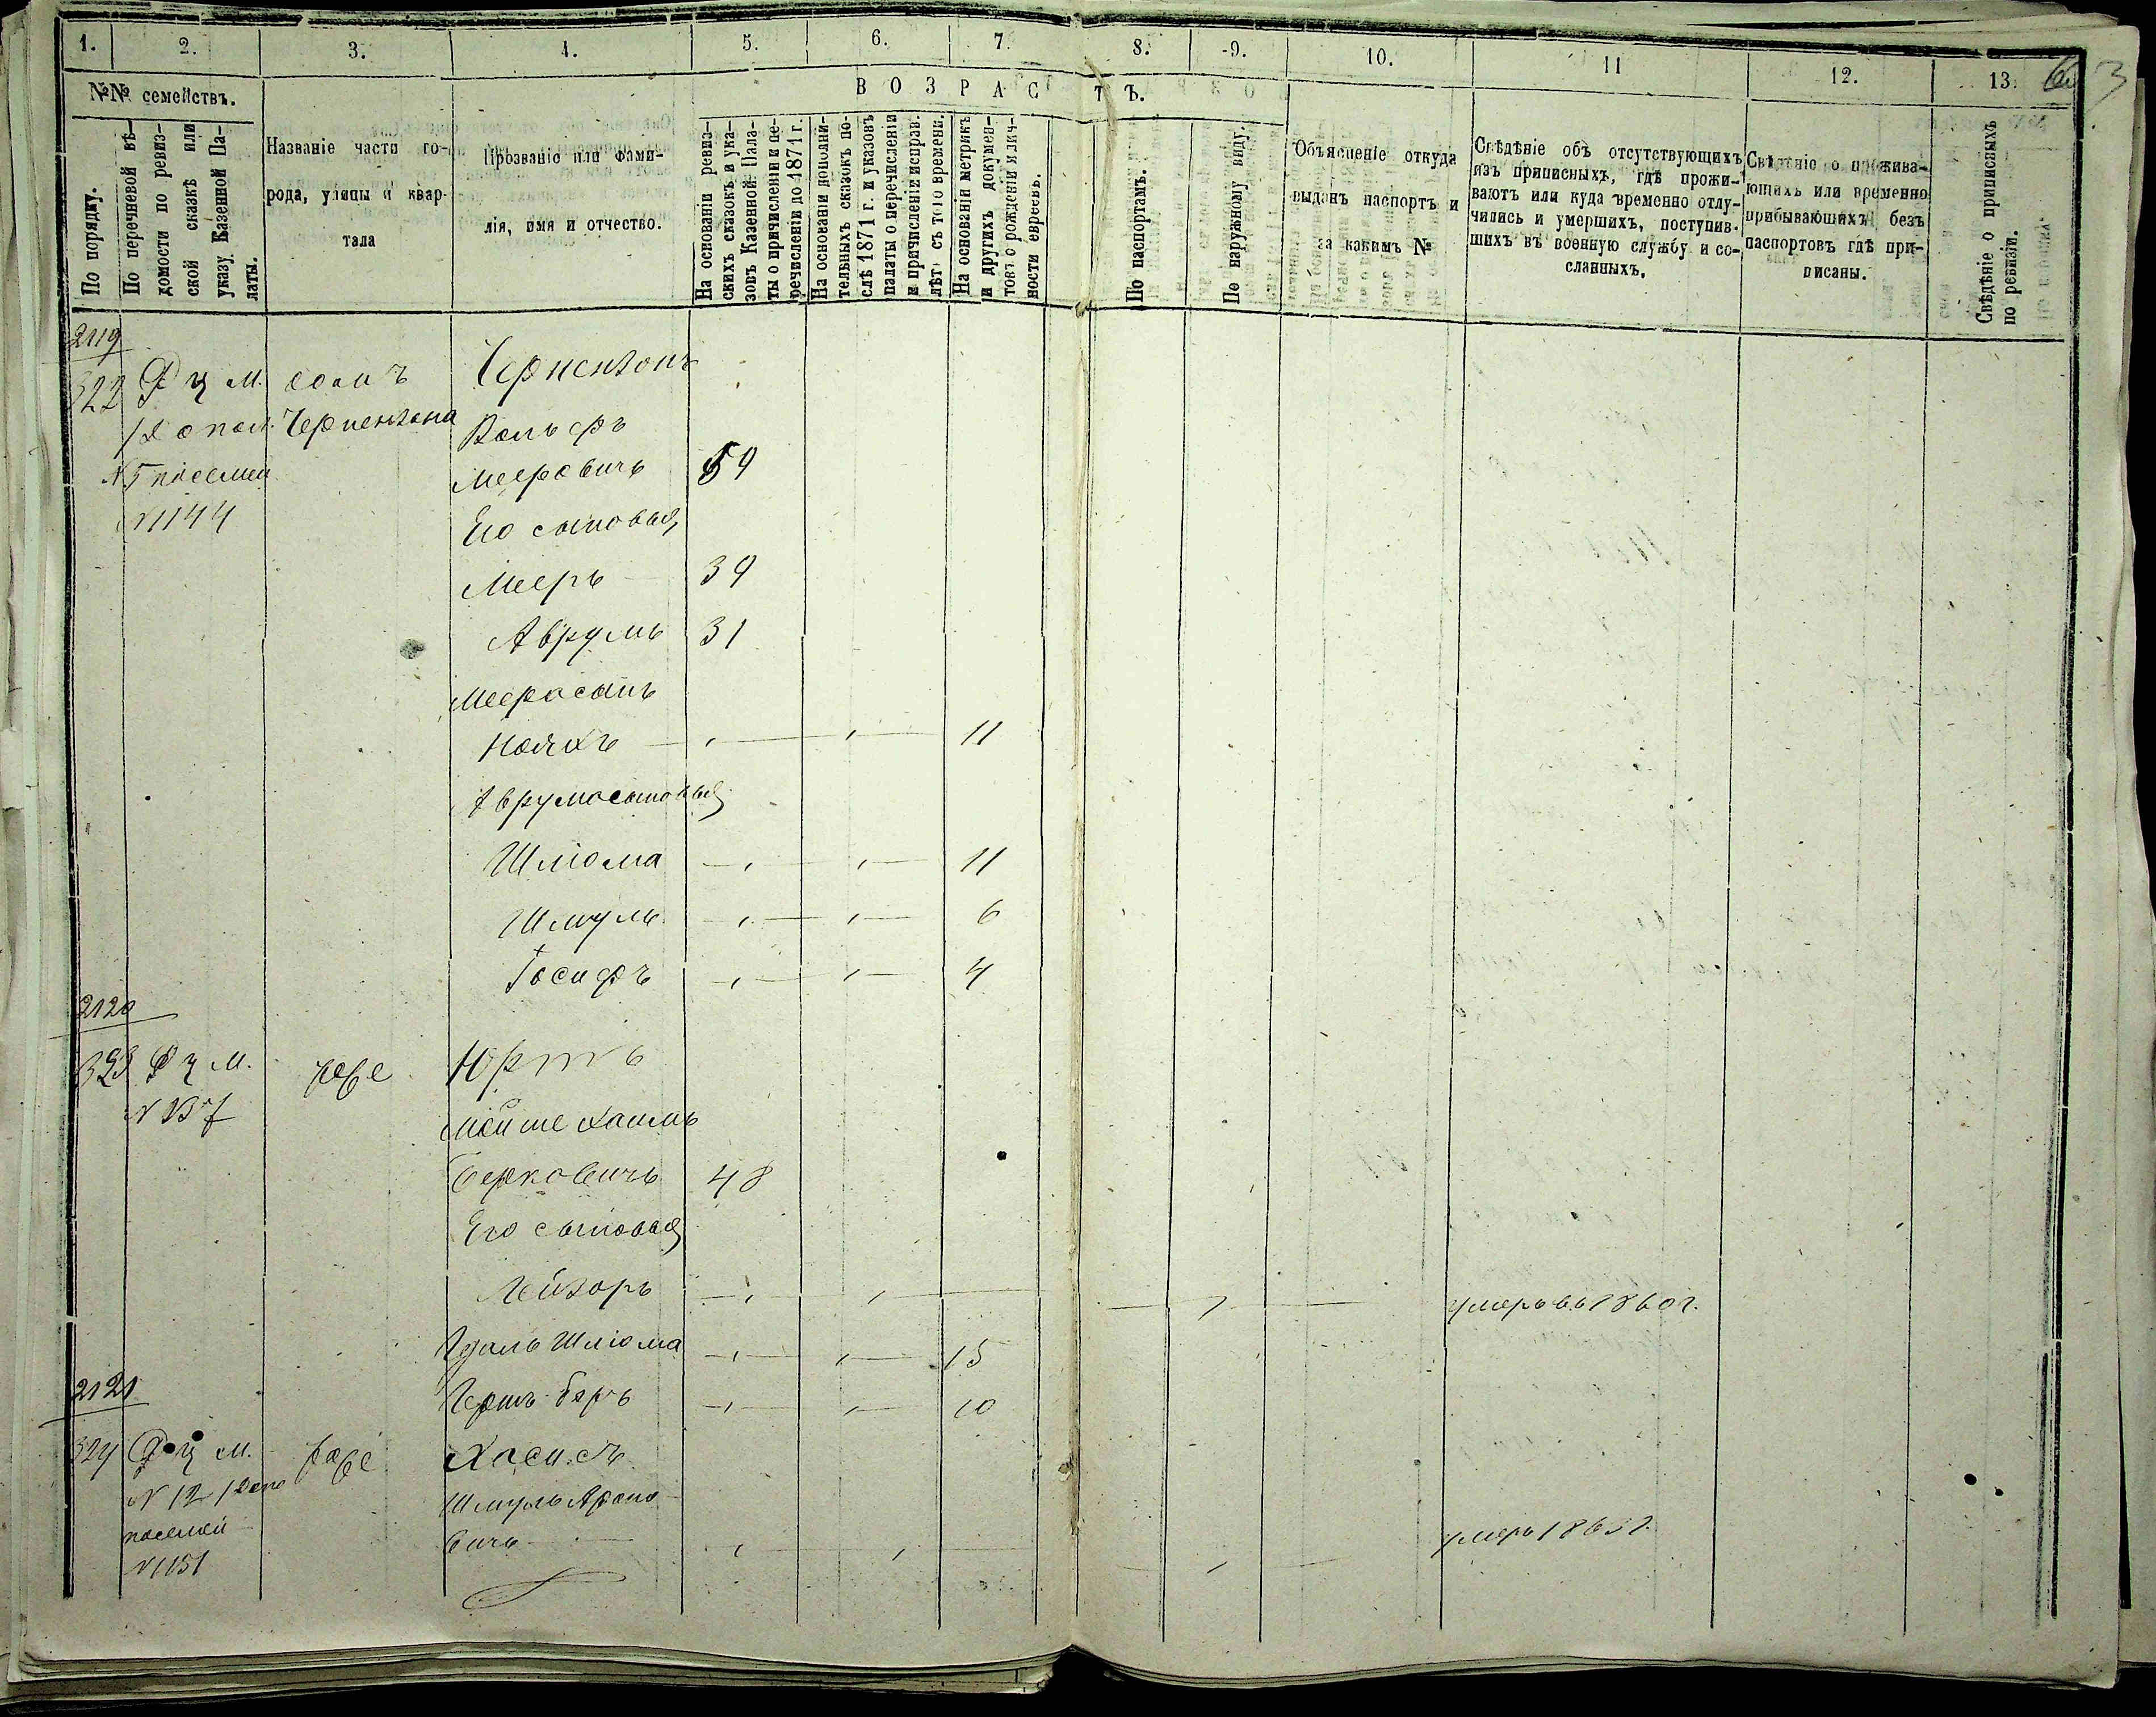 1. 2. 3. 4. 5. 6. 7. 8. 9. 10. 11 12. 13.
№№ семействъ.
По порядку.
По перечневой вѣ-
домости по ревиз-
ской сказкѣ или
указу Казенной Па-
латы.
Названіе части го-
рода, улицы и квар-
тала
Прозваніе или фами-
лія, имя и отчество.
ВОЗРАСТЪ.
На основаніи ревиз-
скихъ сказокъ и ука-
зовъ Казенной Пала-
ты о причисленіи и пе-
речисленіи до 1871 г.
На основаніи дополни-
тельныхъ сказокъ по-
слѣ 1871 г. и указовъ
палаты о перечисленіи
и причисленіи исправ.
лѣтъ съ того времени.
На основаніи метрикъ
и другихъ докумен-
товъ о рожденіи и лич-
ности евреевъ.
По паспортамъ.
По наружному виду.
Объясненіе откуда
выданъ паспортъ и
за какимъ №
Свѣдѣніе объ отсутствующихъ
изъ приписныхъ, гдѣ прожи-
ваютъ или куда временно отлу-
чились и умершихъ, поступив-
шихъ въ военную службу и со-
сланныхъ.
Свѣдѣніе о прожива-
ющихъ или временно
прибывающихъ безъ
паспортовъ гдѣ при-
писаны.
Свѣдѣніе о приписныхъ
по ревизіи.
2119
322 М. домъ Чернензонъ
Чернензона Вольфъ
№5 посемей Мееровичъ 59
№1144 Его сыновья,
Мееръ 39
Аврумъ 31
Меера сынъ
Ноихъ 11
Аврума сыновья
Шлiома 11
Шмуль 6
Іосифъ 4
2120
323 М. Юртъ
Мойше Хаимъ
Берковичъ 48
Его сыновья
Лейзоръ умеръ въ 1860 г.
Шлiома 15
Гершъ-Беръ 10
2121
324 М. Хасисъ
№ 12 Шмуль Ароно-
посемей вичъ умеръ 1863 г.
№1151